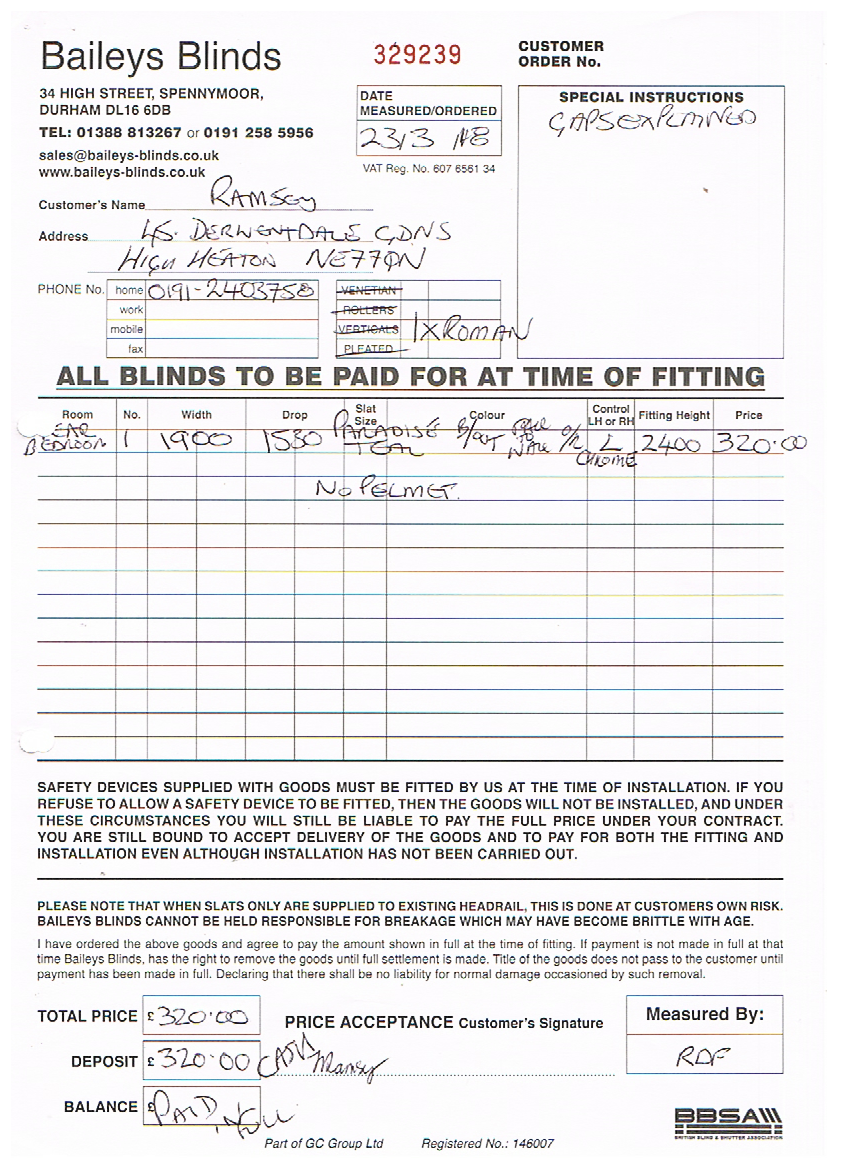 Baileys Blinds
329239
CUSTOMER
ORDER No.
34 HIGH STREET, SPENNYMOOR,
DURHAM DL16 6DB
TEL: 01388 813267 or 0191 258 5956
sales@baileys-blinds.co.uk
www.baileys-blinds.co.uk
DATE
MEASURED/ORDERED
23/3 /18
VAT Reg. No. 607 6561 34
SPECIAL INSTRUCTIONS
GAPS EXPLAINED
Customer's Name RAMSEY
Address 45. DERWENTDALE GDNS
HIGH HEATON NE77QN
PHONE No. home 0191-2403758
work
mobile
fax
VENETIAN
ROLLERS
VERTICALS
PLEATED
1 X ROMAN
ALL BLINDS TO BE PAID FOR AT TIME OF FITTING
Room No. Width Drop Slat Size Colour Control LH or RH Fitting Height Price
BEDROOM 1 1900 1530 PARADISE TEAL B/OUT TO WALL O/R L CHROME 2400 320.00
NO PELMET.
SAFETY DEVICES SUPPLIED WITH GOODS MUST BE FITTED BY US AT THE TIME OF INSTALLATION. IF YOU
REFUSE TO ALLOW A SAFETY DEVICE TO BE FITTED, THEN THE GOODS WILL NOT BE INSTALLED, AND UNDER
THESE CIRCUMSTANCES YOU WILL STILL BE LIABLE TO PAY THE FULL PRICE UNDER YOUR CONTRACT.
YOU ARE STILL BOUND TO ACCEPT DELIVERY OF THE GOODS AND TO PAY FOR BOTH THE FITTING AND
INSTALLATION EVEN ALTHOUGH INSTALLATION HAS NOT BEEN CARRIED OUT.
PLEASE NOTE THAT WHEN SLATS ONLY ARE SUPPLIED TO EXISTING HEADRAIL, THIS IS DONE AT CUSTOMERS OWN RISK.
BAILEYS BLINDS CANNOT BE HELD RESPONSIBLE FOR BREAKAGE WHICH MAY HAVE BECOME BRITTLE WITH AGE.
I have ordered the above goods and agree to pay the amount shown in full at the time of fitting. If payment is not made in full at that
time Baileys Blinds, has the right to remove the goods until full settlement is made. Title of the goods does not pass to the customer until
payment has been made in full. Declaring that there shall be no liability for normal damage occasioned by such removal.
TOTAL PRICE £320.00
PRICE ACCEPTANCE Customer's Signature
Measured By:
RDF
DEPOSIT £320.00 CASH
BALANCE £PAID IN FULL
BBSA
BRITISH BLIND & SHUTTER ASSOCIATION
Part of GC Group Ltd Registered No.: 146007